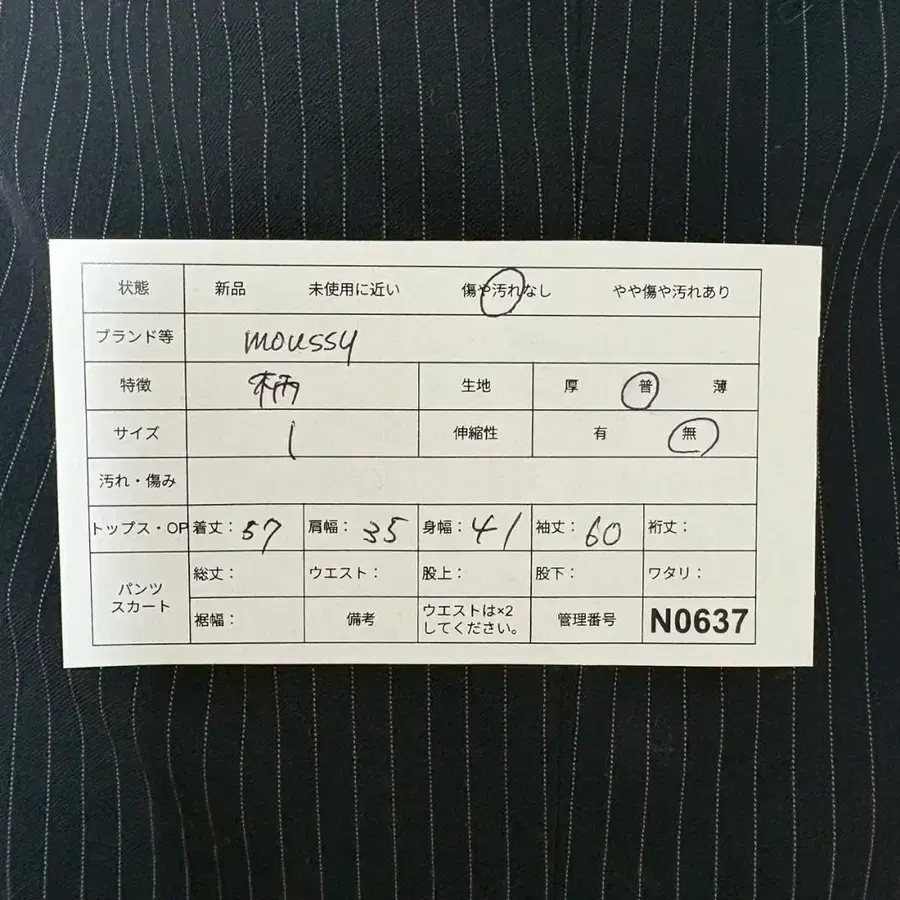 状態 新品 未使用に近い 傷や汚れなし やや傷や汚れあり
ブランド等 moussy
特徴 柄 生地 厚 普 薄
サイズ 1 伸縮性 有 無
汚れ・傷み
トップス・OP 着丈：57 肩幅：35 身幅：41 袖丈：60 裄丈：
パンツ スカート 総丈： ウエスト： 股上： 股下： ワタリ：
裾幅： 備考 ウエストは×2 してください。 管理番号 N0637